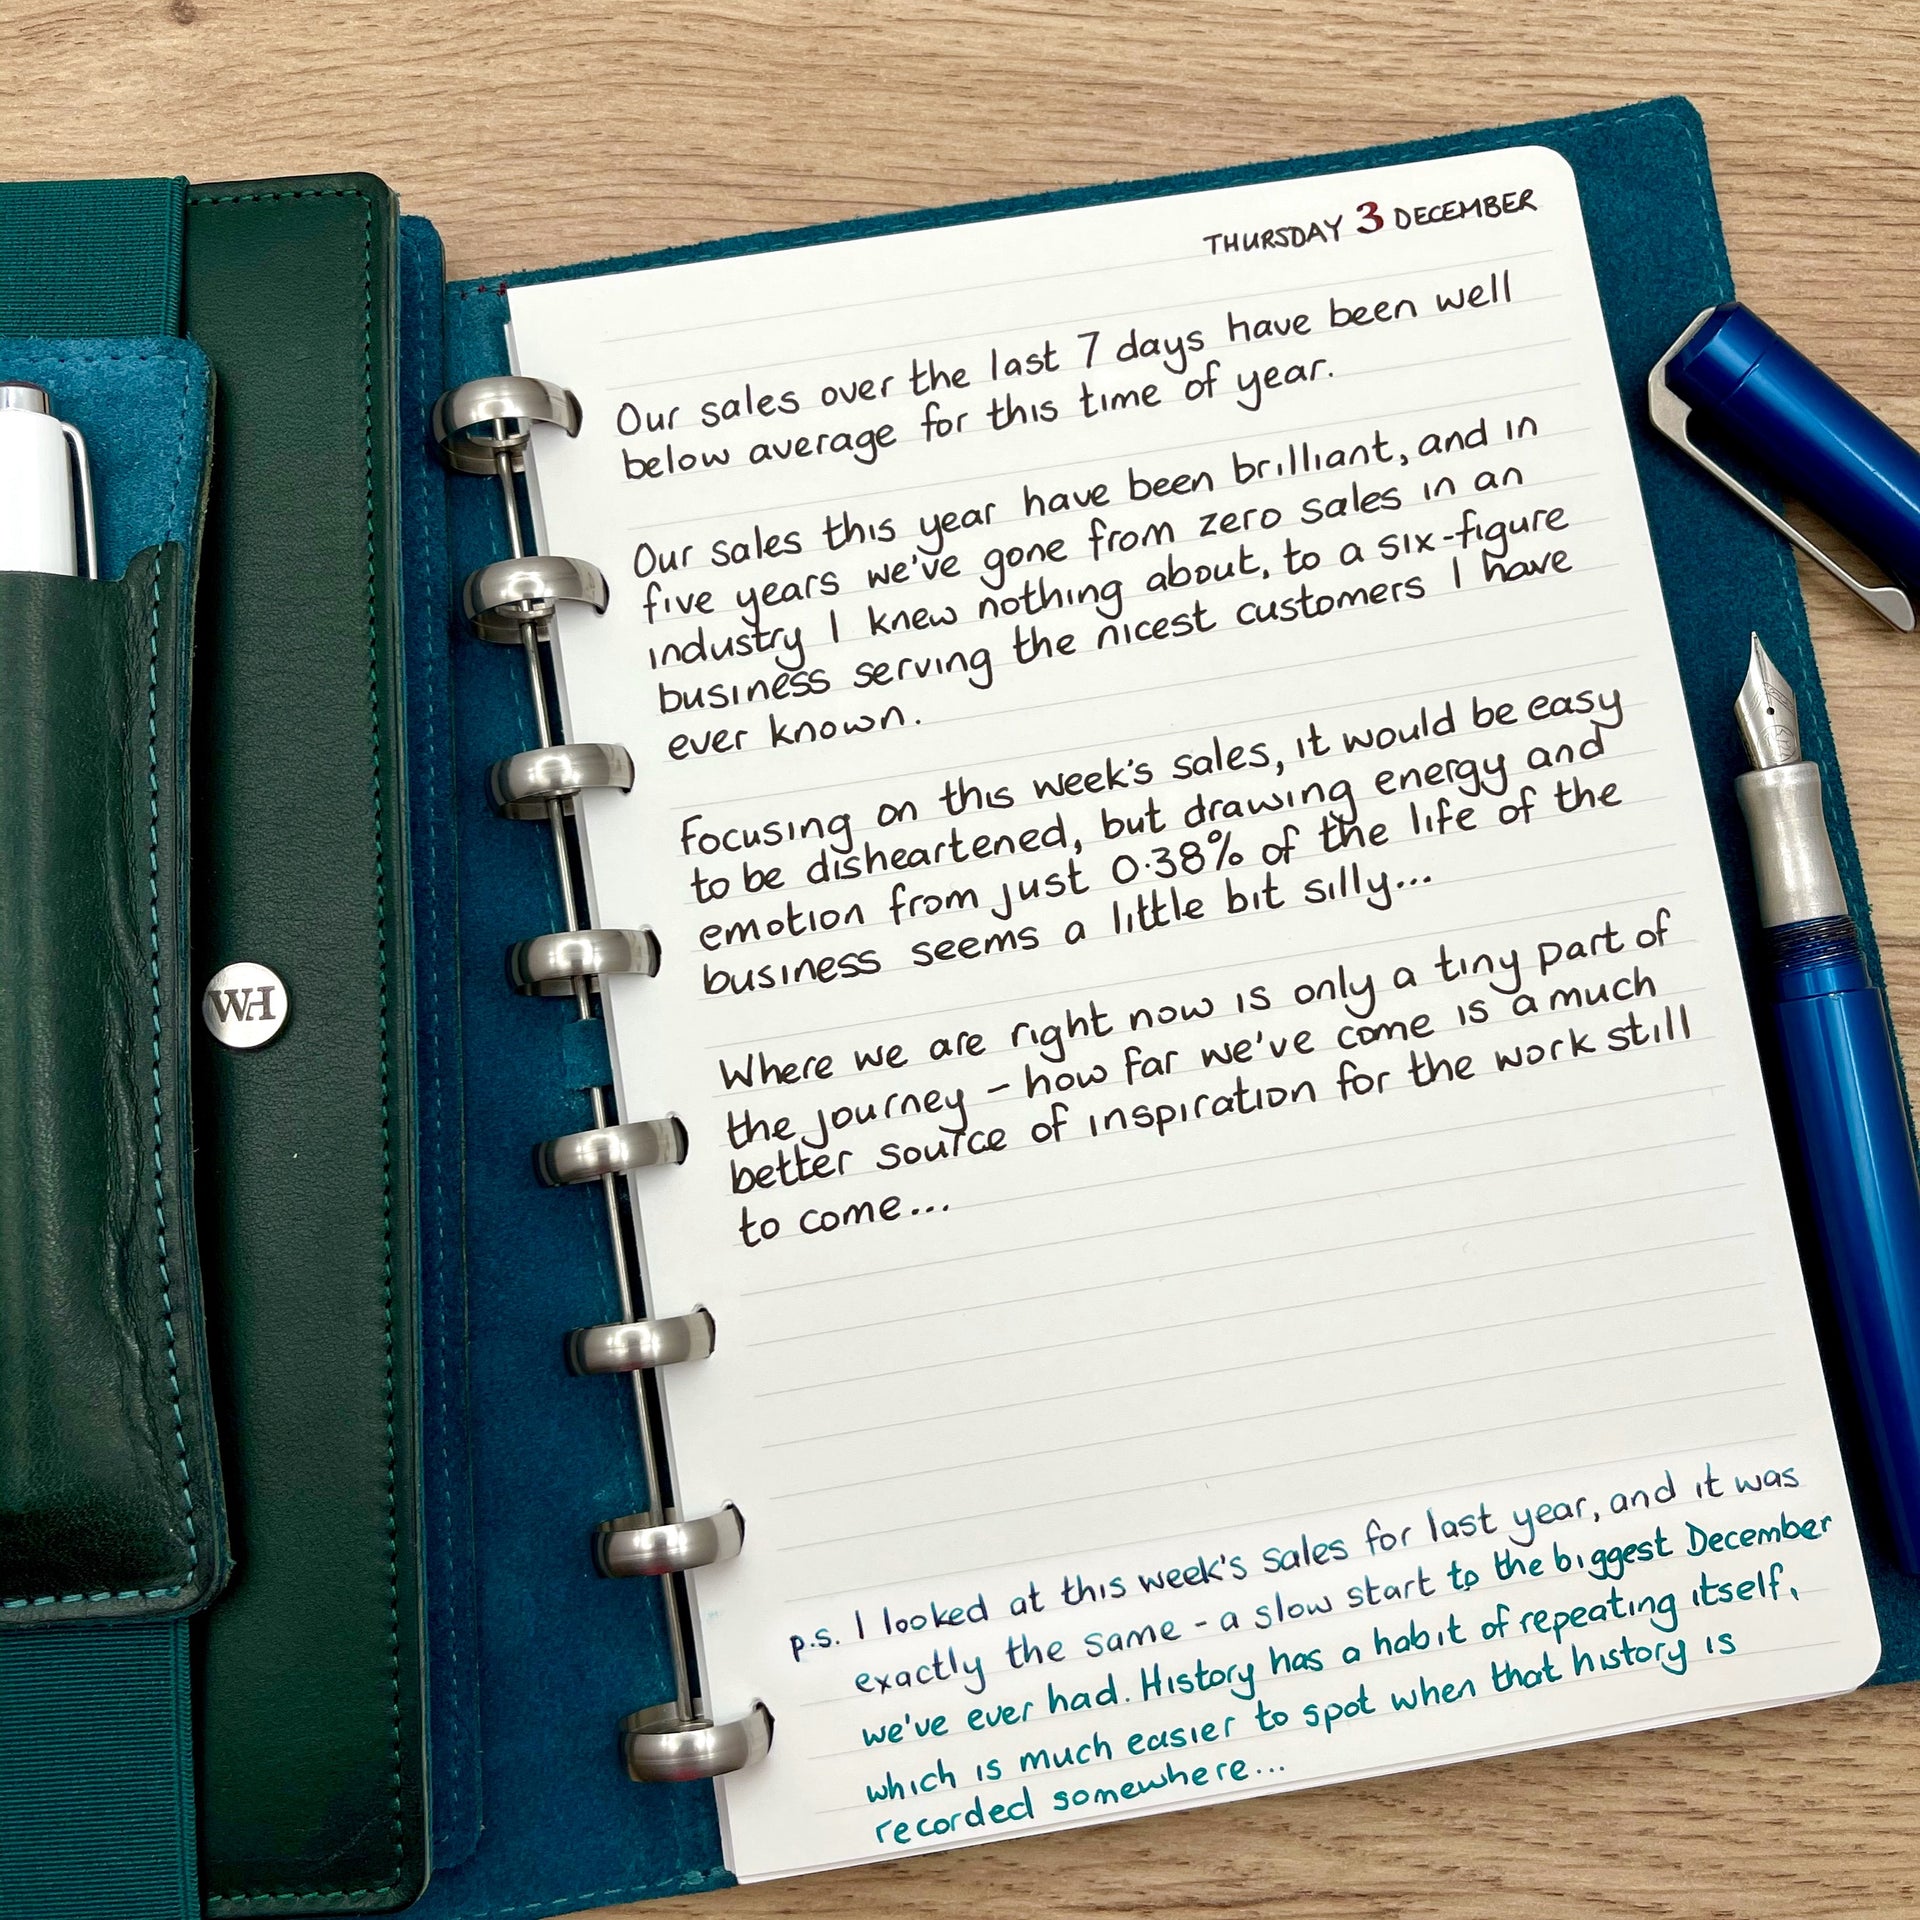 THURSDAY 3 DECEMBER
Our sales over the last 7 days have been well
below average for this time of year.
Our sales this year have been brilliant, and in
five years we've gone from zero sales in an
industry I knew nothing about, to a six-figure
business serving the nicest customers I have
ever known.
Focusing on this week's sales, it would be easy
to be disheartened, but drawing energy and
emotion from just 0.38% of the life of the
business seems a little bit silly...
Where we are right now is only a tiny part of
the journey - how far we've come is a much
better source of inspiration for the work still
to come...
p.s. I looked at this week's sales for last year, and it was
exactly the same - a slow start to the biggest December
we've ever had. History has a habit of repeating itself,
which is much easier to spot when that history is
recorded somewhere...
WH